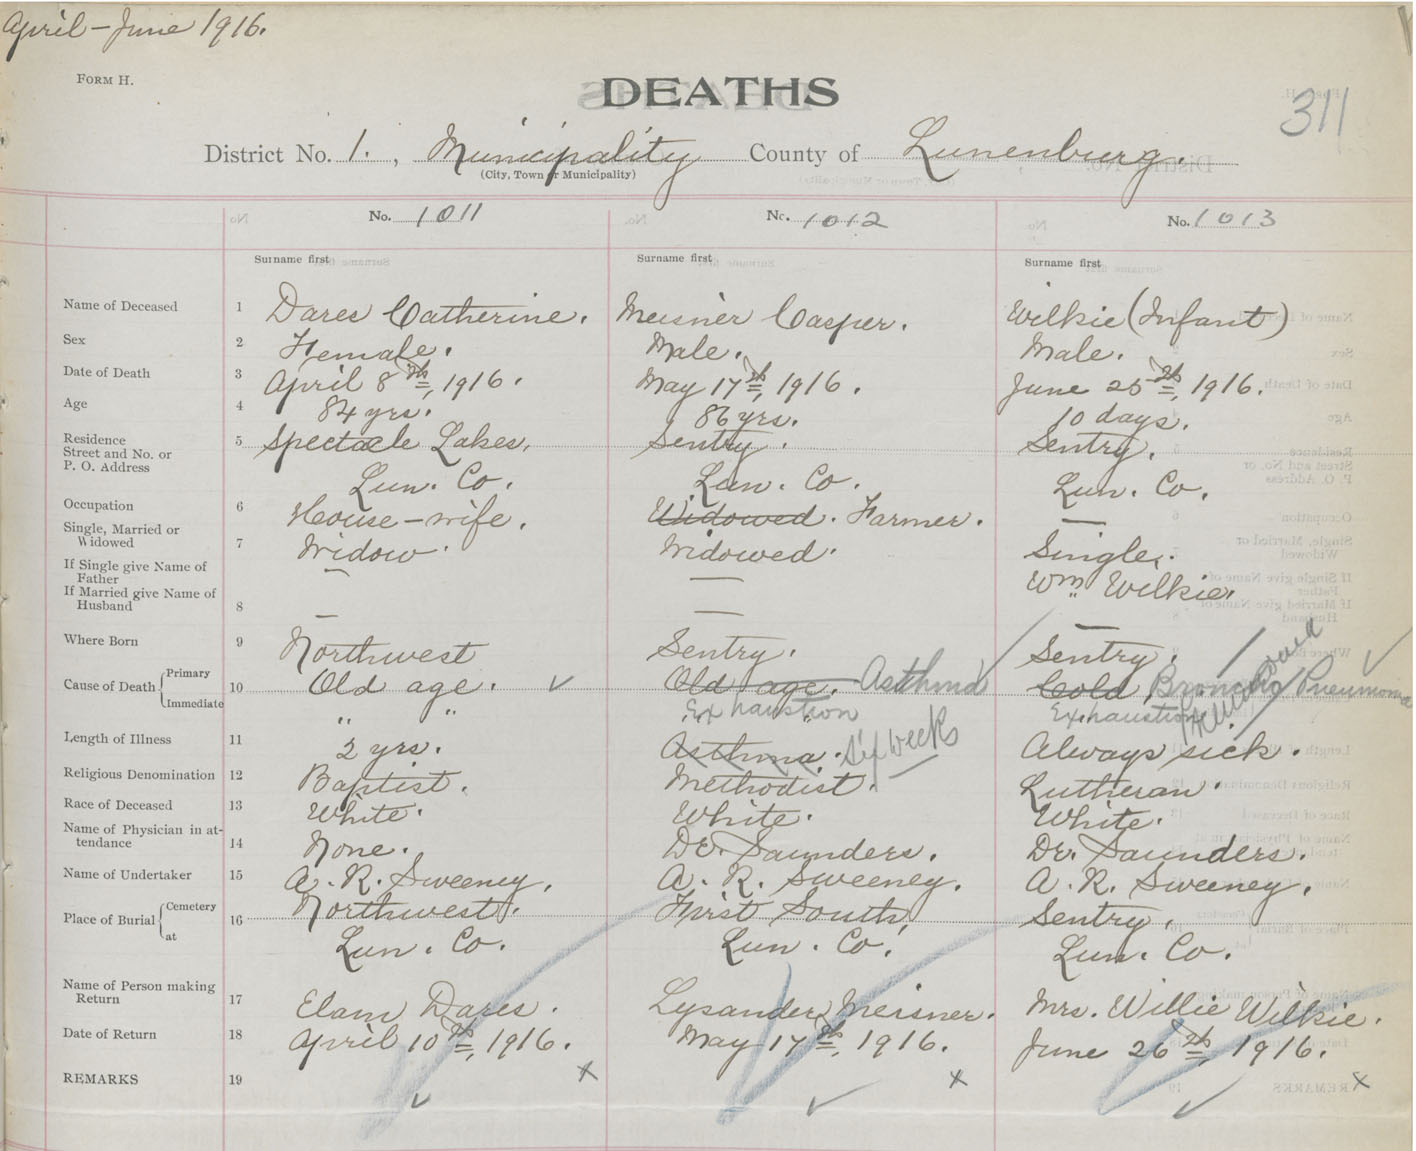 April - June 1916.
FORM H.
DEATHS
311
District No. 1. , Municipality County of Lunenburg.
(City, Town or Municipality)
No. 1011 No. 1012 No. 1013
Surname first Surname first Surname first
Name of Deceased 1 Dares Catherine. Meisner Casper. Wilkie (Infant)
Sex 2 Female. Male. Male.
Date of Death 3 April 8th, 1916. May 17th, 1916. June 25th, 1916.
Age 4 84 yrs. 86 yrs. 10 days.
Residence 5 Spectacle Lakes. Sentry. Sentry.
Street and No. or
P. O. Address Lun. Co. Lun. Co. Lun. Co.
Occupation 6 House-wife. Widowed. Farmer. —
Single, Married or
Widowed 7 Widow. Widowed. Single.
If Single give Name of
Father — — Wm Wilkie.
If Married give Name of
Husband 8 — — —
Where Born 9 Northwest Sentry. Sentry.
Cause of Death { Primary 10 Old age. ✓ Old age. Asthma ✓ Cold Broncho Pneumonia ✓
Immediate " " Exhaustion Exhaustion
Length of Illness 11 2 yrs. Asthma. Six weeks Always sick.
Religious Denomination 12 Baptist. Methodist. Lutheran.
Race of Deceased 13 White. White. White.
Name of Physician in at-
tendance 14 None. Dr. Saunders. Dr. Saunders.
Name of Undertaker 15 A. R. Sweeney. A. R. Sweeney. A. R. Sweeney.
Place of Burial { Cemetery 16 Northwest. First South, Sentry.
at Lun. Co. Lun. Co. Lun. Co.
Name of Person making
Return 17 Elam Dares. Lysander Meisner. Mrs. Willie Wilkie.
Date of Return 18 April 10th, 1916. May 17th, 1916. June 26th, 1916.
REMARKS 19 x x x
✓ ✓ ✓